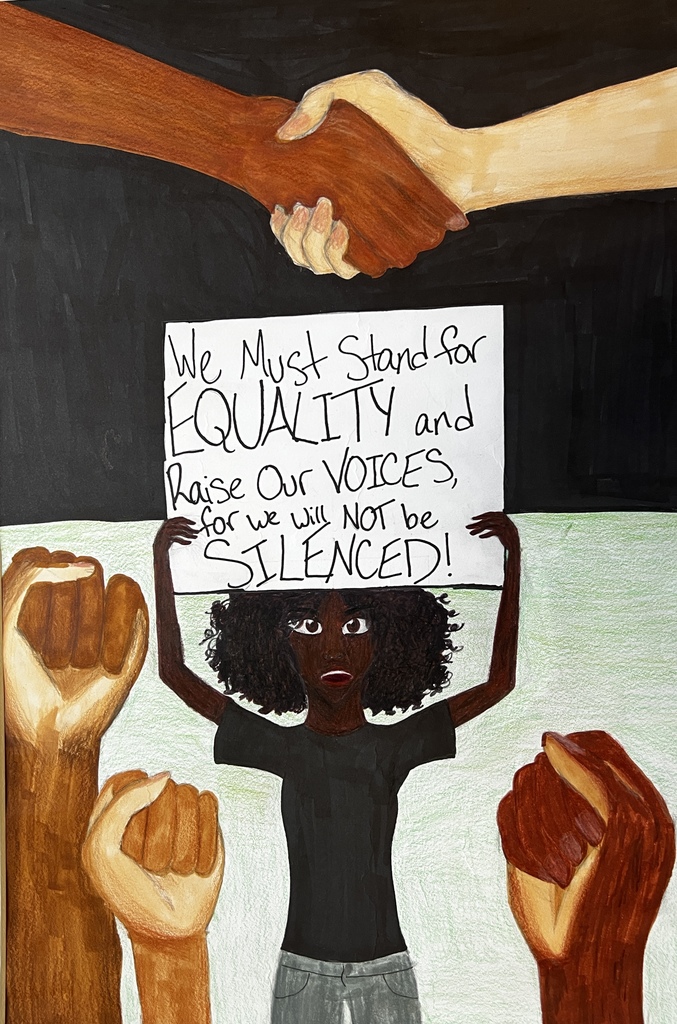 We Must Stand for
EQUALITY and
Raise Our VOICES,
for we will NOT be
SILENCED!